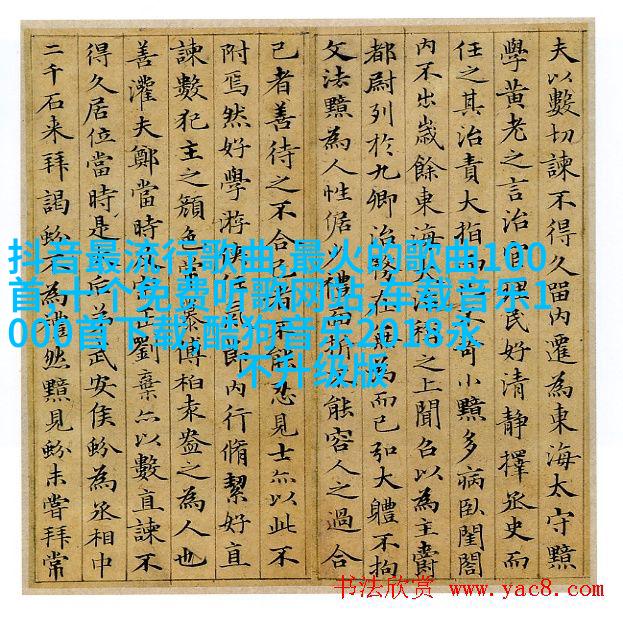 夫以數切諫不得久畱内遷為東海太守黯
學黃老之言治官理民好清靜擇丞史而
任之其治責大指而不苛小黯多病臥閨閤
内不出歲餘東海大治稱之上聞召以為主爵
都尉列於九卿治務在無為而已弘大體不拘
文法黯為人性倨少禮面折能容人之過合
己者善待之不合己者不能忍見士亦以此不
附焉然好學游俠任氣節内行脩絜好直
諫數犯主之顏色常慕傅柏袁盎之為人也
善灌夫鄭當時宗正劉棄亦以數直諫不
得久居位當時是后為武安侯蚡為丞相中
二千石来拜謁蚡不為禮然黯見蚡未嘗拜常
抖音最流行歌曲,最火的歌曲100
首,十个免费听歌网站,车载音乐1
000首下载,酷狗音乐2018永
不升级版
书法欣赏 www.yac8.com